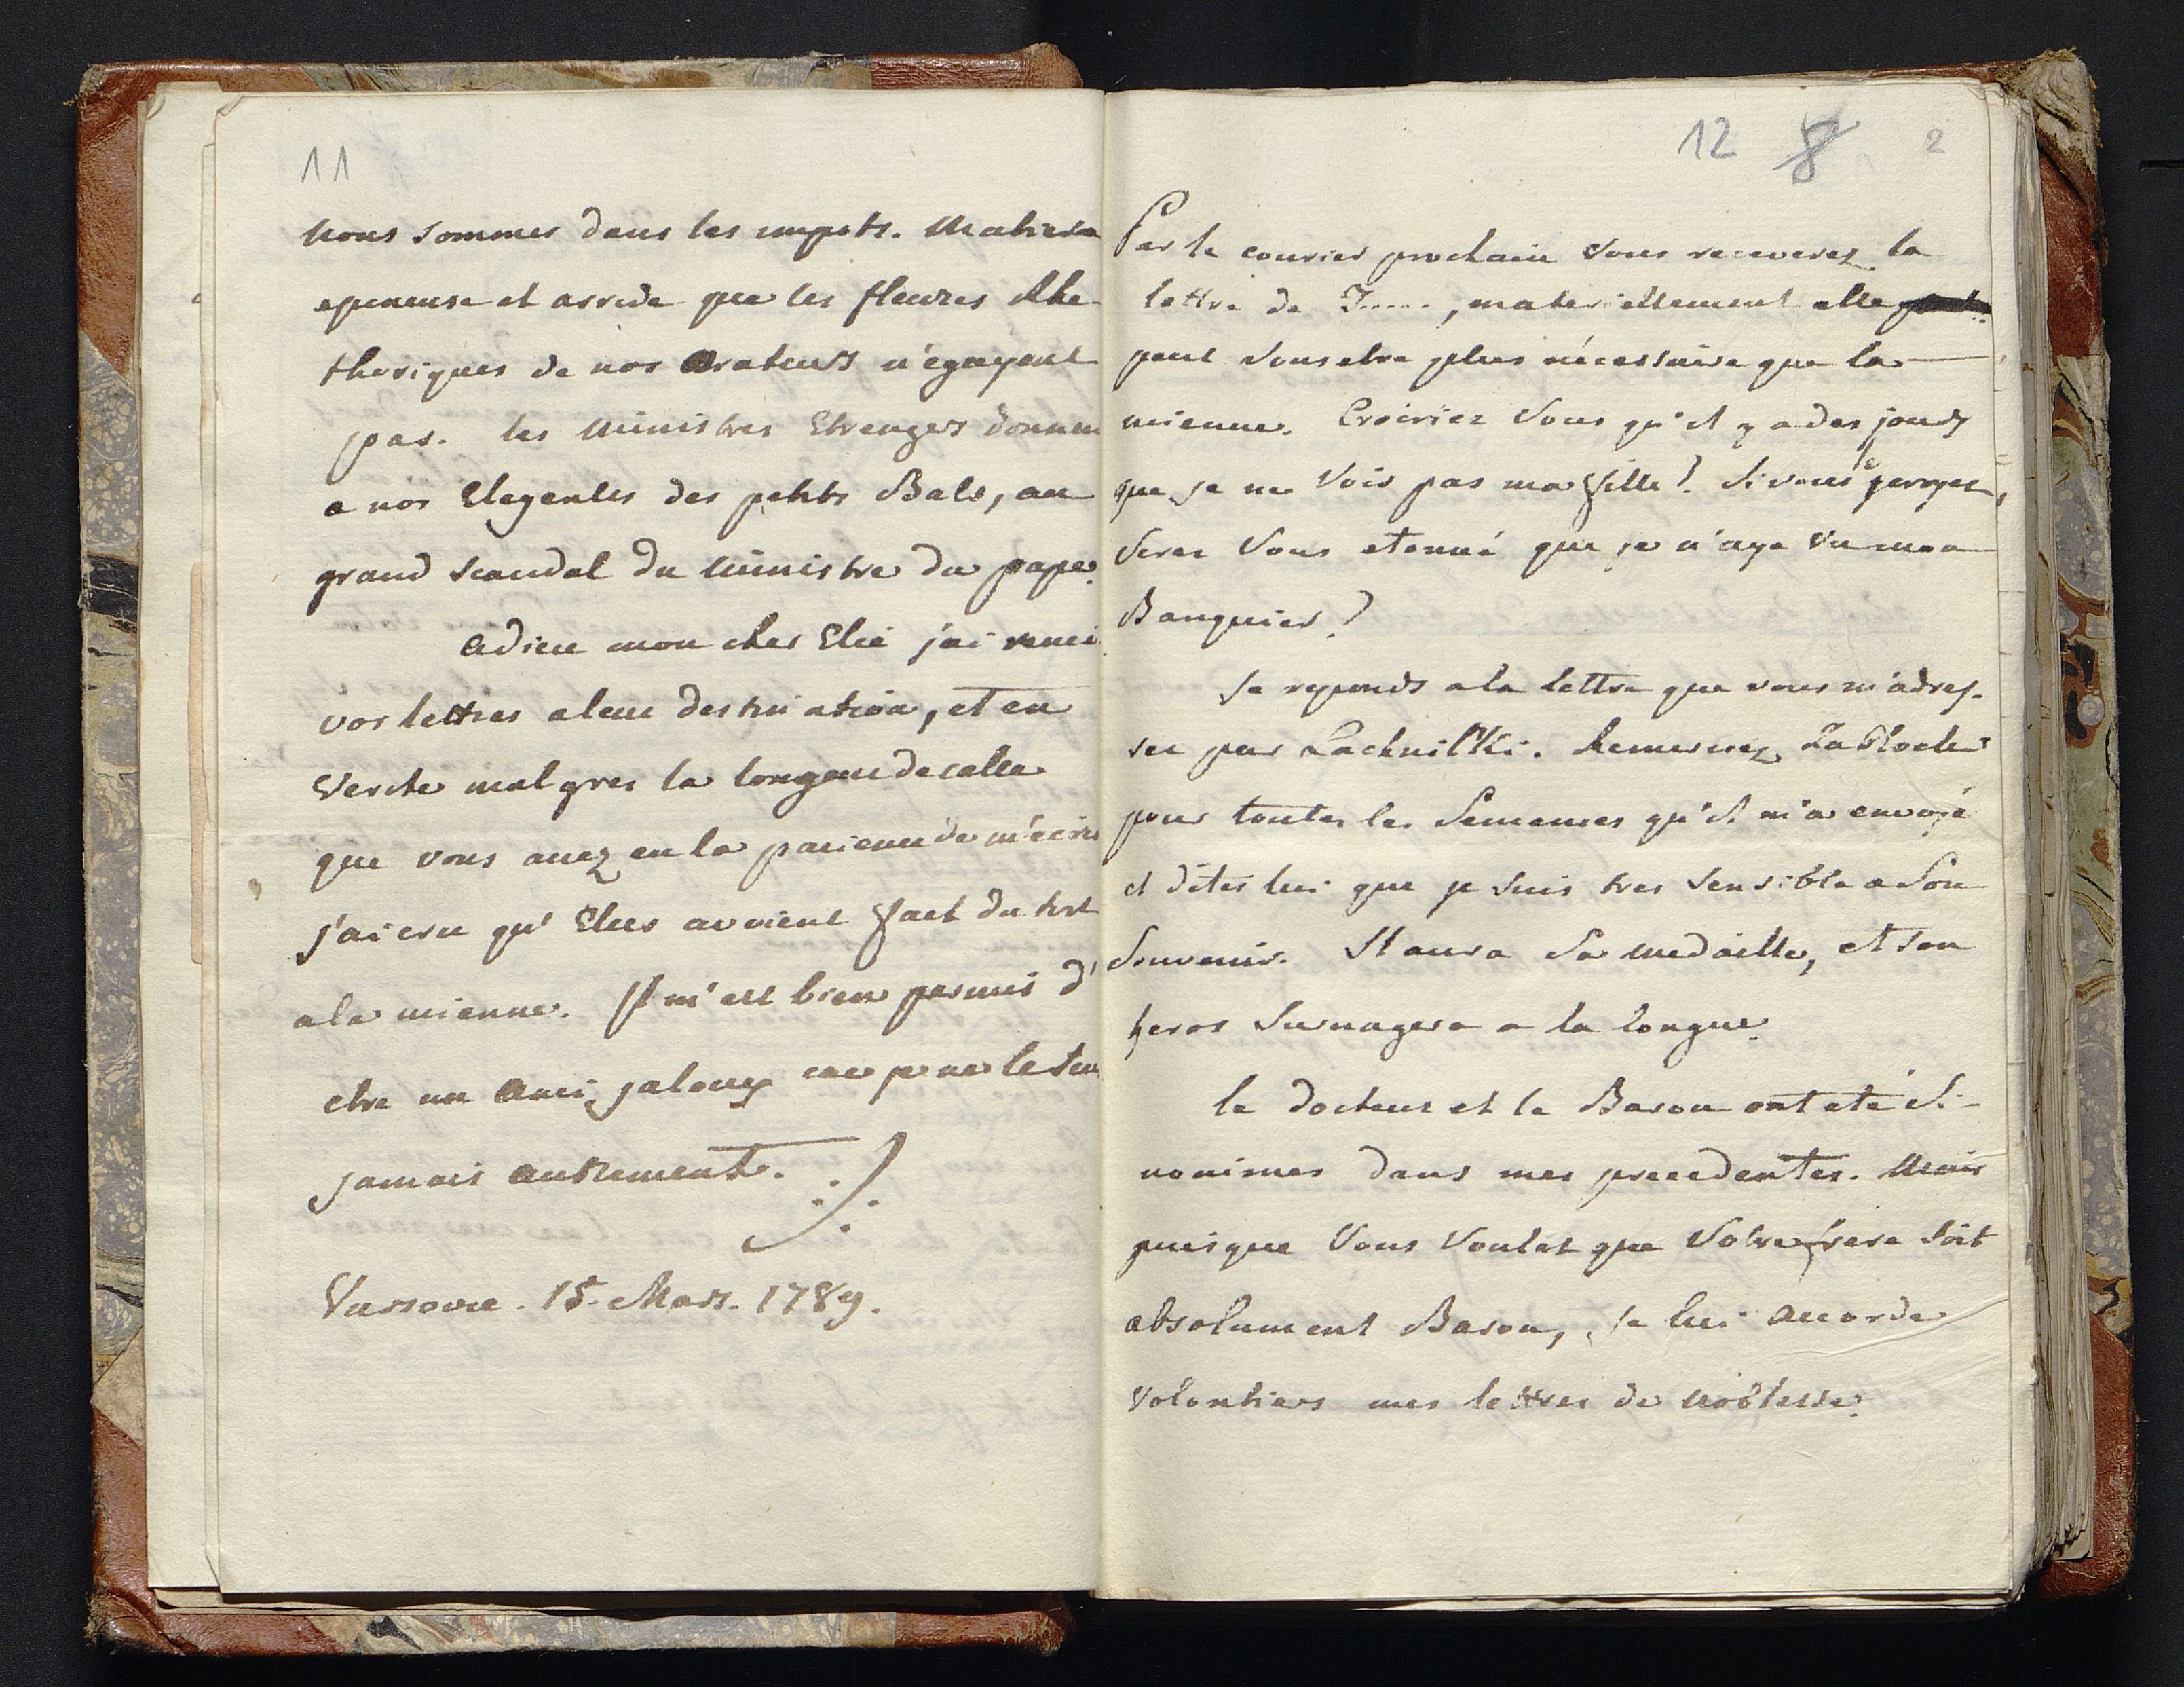 11
Nous sommes dans les impots. Matiere
epineuse et arride que les fleures Rhe
thoriques de nos Orateurs n'égayent
pas. les Ministres Etrengers donnen
a nos Elegentes des petits Bals, au
grand scandal du Ministre du pape.
Adieu mon cher Elie j'ai remi
vos lettres a leur destination, et en
Verite malgres la longeur de celle
que vous avez eu la pacience de m'ecrire
j'ai cru qu' Elles avoient fait du tort
a la mienne. Il m'est bien permis d'
etre un Ami jaloux car je ne le suis
jamais autrement.
Varsovie. 15. Mars. 1789.
12 8 2
Par le courier prochain vous receverez la
lettre de I....., materiellement elle
peut vous etre plus nécessaire que la
mienne. Croiriez Vous qu'il y a des jours
que je ne Vois pas ma fille? Si vous le
Serez Vous etonné que je n'aye vu mon
Banquier?
Je reponds a la lettre que vous m'adres-
sez par Lachnitki. Remerciez Zablocki
pour toutes les Semences qu'il m'a envoyé
et dites lui que je suis tres sensible a Son
Souvenir. Il aura Sa medaille, et son
heros Surnagera a la longue.
le docteur et le Baron ont eté Si-
nonimes dans mes precedentes. Mais
puisque Vous Voulez que Votre frere Soit
absolument Baron, je lui accorde
Volontiers mes lettres de noblesse.